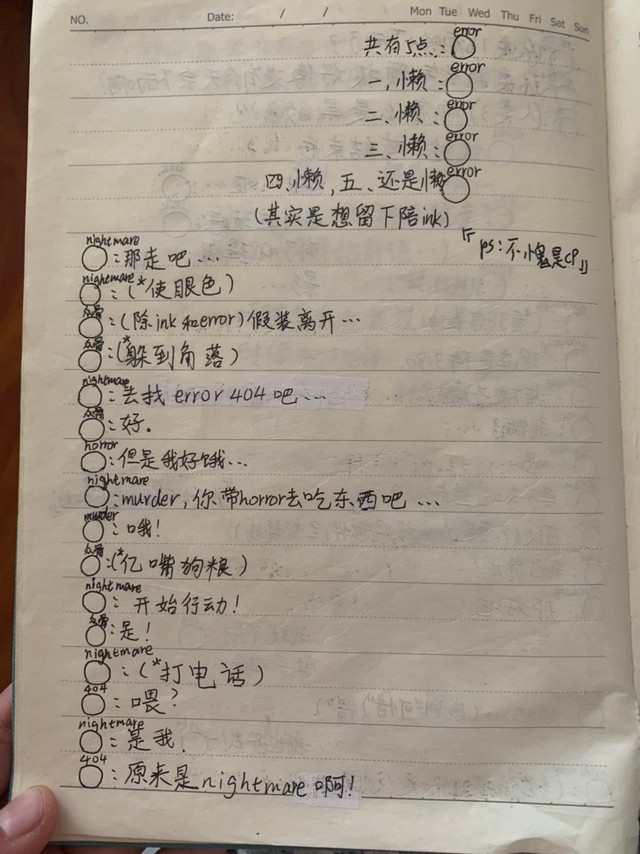 NO. Date: / / Mon Tue Wed Thu Fri Sat Sun
error
共有5点:
error
一,懒:
error
二、懒:
error
三、懒:
error
四、懒,五、还是懒
(其实是想留下陪ink)
『ps:不愧是cp』
nightmare
:那走吧…
nightmare
:(*使眼色)
众骨
:(除ink和error)假装离开…
众骨
:(*躲到角落)
nightmare
:去找error404吧…
众骨
:好.
horror
:但是我好饿…
nightmare
:murder,你带horror去吃东西吧…
murder
:哦!
众骨
:(*亿嘴狗粮)
nightmare
:开始行动!
众骨
:是!
nightmare
:(*打电话)
404
:喂?
nightmare
:是我!
404
:原来是nightmare啊!